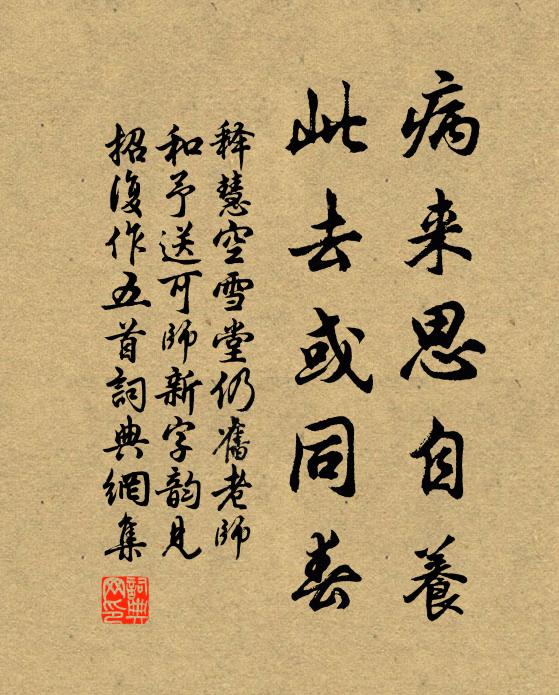 病来思自養
此去或同春
释慧空雪堂仍舊老師
和予送可師新字韵見
招復作五首詞典網集
詞典
网印